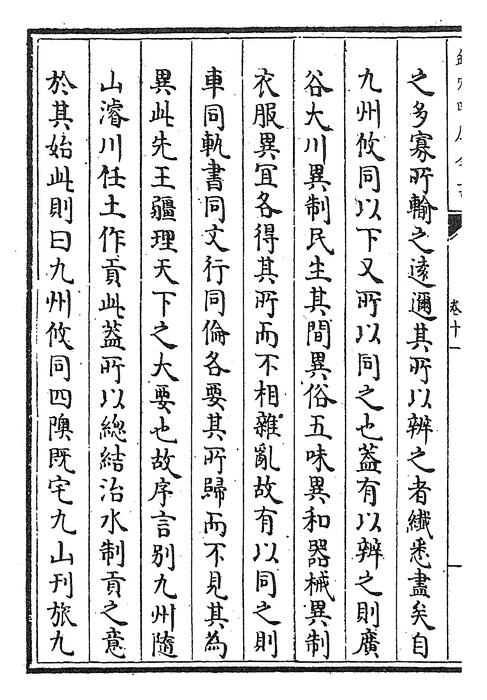 卷十一
之多寡所輸之遠邇其所以辨之者纎悉盡矣自
九州攸同以下又所以同之也葢有以辨之則廣
谷大川異制民生其間異俗五味異和器械異制
衣服異宜各得其所而不相雜亂故有以同之則
車同軌書同文行同倫各要其所歸而不見其為
異此先王疆理天下之大要也故序言别九州隨
山濬川任土作貢此葢所以總結治水制貢之意
於其始此則曰九州攸同四隩既宅九山刋旅九